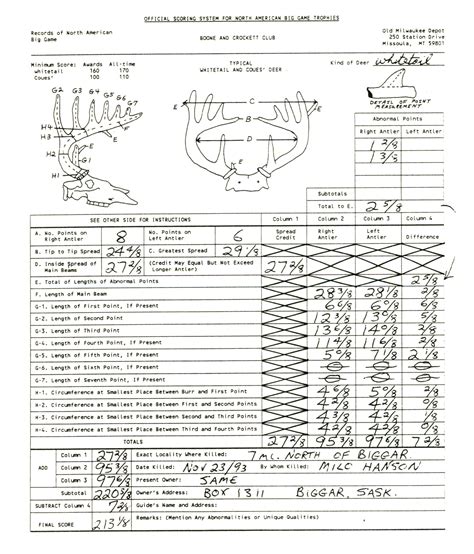 OFFICIAL SCORING SYSTEM FOR NORTH AMERICAN BIG GAME TROPHIES
Records of North American Big Game
BOONE AND CROCKETT CLUB
Old Milwaukee Depot
250 Station Drive
Missoula, MT 59801
Minimum Score: Awards All-time
whitetail 160 170
Coues' 100 110
TYPICAL
WHITETAIL AND COUES' DEER
Kind of Deer whitetail
DETAIL OF POINT MEASUREMENT
G2 G3 G4 G5 G6 G7
H4 H3 H2 G1 H1 E F
C B D E
Abnormal Points
Right Antler Left Antler
1 2/8
1 3/8
Subtotals
Total to E. 2 5/8
SEE OTHER SIDE FOR INSTRUCTIONS Column 1 Column 2 Column 3 Column 4
A. No. Points on Right Antler 8 No. Points on Left Antler 6 Spread Credit Right Antler Left Antler Difference
B. Tip to Tip Spread 24 4/8 C. Greatest Spread 29 1/8
D. Inside Spread of Main Beams 27 2/8 (Credit May Equal But Not Exceed Longer Antler) 27 2/8
E. Total of Lengths of Abnormal Points 2 5/8
F. Length of Main Beam 28 3/8 28 1/8 2/8
G-1. Length of First Point, If Present 6 6/8 6 0/8 6/8
G-2. Length of Second Point 12 3/8 13 0/8 5/8
G-3. Length of Third Point 13 6/8 14 0/8 2/8
G-4. Length of Fourth Point, If Present 11 4/8 11 6/8 2/8
G-5. Length of Fifth Point, If Present 5 0/8 7 1/8 2 1/8
G-6. Length of Sixth Point, If Present
G-7. Length of Seventh Point, If Present
H-1. Circumference at Smallest Place Between Burr and First Point 4 6/8 5 0/8 2/8
H-2. Circumference at Smallest Place Between First and Second Points 4 2/8 4 2/8 0/8
H-3. Circumference at Smallest Place Between Second and Third Points 4 3/8 4 2/8 1/8
H-4. Circumference at Smallest Place Between Third and Fourth Points 4 2/8 4 2/8 0/8
TOTALS 27 2/8 95 3/8 97 6/8 7 2/8
ADD Column 1 27 2/8 Exact Locality Where Killed: 7 MI. NORTH OF BIGGAR.
Column 2 95 3/8 Date Killed: NOV 23/93 By Whom Killed: MILO HANSON
Column 3 97 6/8 Present Owner: SAME
Subtotal 220 3/8 Owner's Address: BOX 1311 BIGGAR, SASK.
SUBTRACT Column 4 7 2/8 Guide's Name and Address:
FINAL SCORE 213 1/8 Remarks: (Mention Any Abnormalities or Unique Qualities)